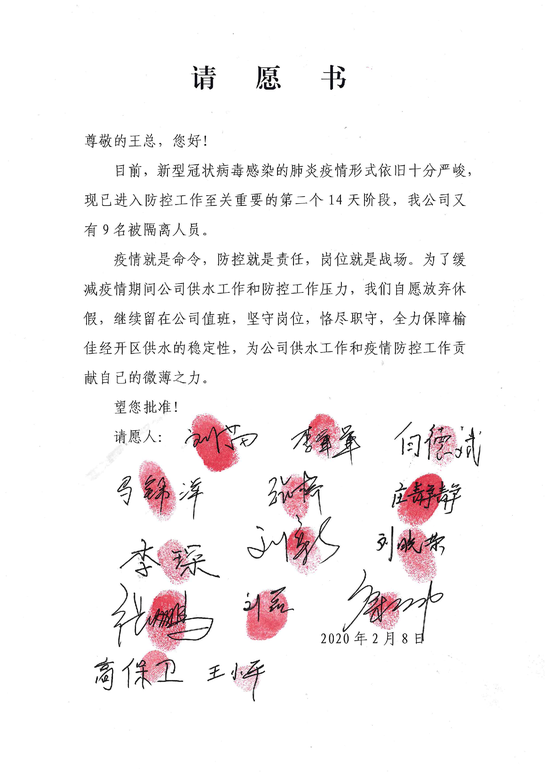 请愿书
尊敬的王总，您好！
目前，新型冠状病毒感染的肺炎疫情形式依旧十分严峻，
现已进入防控工作至关重要的第二个14天阶段，我公司又
有9名被隔离人员。
疫情就是命令，防控就是责任，岗位就是战场。为了缓
减疫情期间公司供水工作和防控工作压力，我们自愿放弃休
假，继续留在公司值班，坚守岗位，恪尽职守，全力保障榆
佳经开区供水的稳定性，为公司供水工作和疫情防控工作贡
献自己的微薄之力。
望您批准！
请愿人：
李军军 白德斌
马锦洋 庄静静
李琛 刘晓荣
张鹏
2020年2月8日
高保卫 王小平